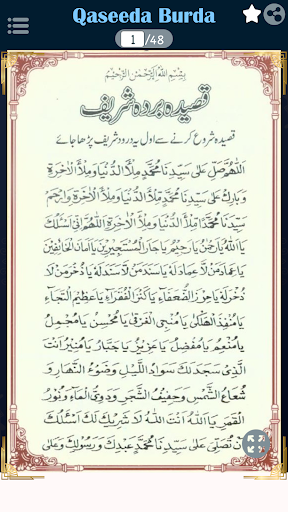 Qaseeda Burda
1 /48
بِسْمِ اللهِ الرَّحْمٰنِ الرَّحِيْمِ
قصیدہ بردہ شریف
قصیدہ شروع کرنے سے اول یہ درود شریف پڑھا جائے
اَللّٰهُمَّ صَلِّ عَلٰى سَيِّدِنَا مُحَمَّدٍ مِلْأَ الدُّنْيَا وَمِلْأَ الْاٰخِرَةِ
وَبَارِكْ عَلٰى سَيِّدِنَا مُحَمَّدٍ مِلْأَ الدُّنْيَا وَمِلْأَ الْاٰخِرَةِ وَارْحَمْ
سَيِّدَنَا مُحَمَّدًا مِلْأَ الدُّنْيَا وَمِلْأَ الْاٰخِرَةِ اَللّٰهُمَّ اِنِّيْ اَسْئَلُكَ
يَا اَللهُ يَا رَحْمٰنُ يَا رَحِيْمُ يَا جَارَ الْمُسْتَجِيْرِيْنَ يَا اَمَانَ الْخَائِفِيْنَ
يَا عِمَادَ مَنْ لَّا عِمَادَ لَهٗ يَا سَنَدَ مَنْ لَّا سَنَدَ لَهٗ يَا ذُخْرَ مَنْ لَّا
ذُخْرَ لَهٗ يَا حِرْزَ الضُّعَفَآءِ يَا كَنْزَ الْفُقَرَآءِ يَا عَظِيْمَ الرَّجَآءِ
يَا مُنْقِذَ الْهَلْكٰى يَا مُنْجِيَ الْغَرْقٰى يَا مُحْسِنُ يَا مُجْمِلُ
يَا مُنْعِمُ يَا مُفْضِلُ يَا عَزِيْزُ يَا جَبَّارُ يَا مُنِيْرُ اَنْتَ
الَّذِيْ سَجَدَ لَكَ سَوَادُ اللَّيْلِ وَضَوْءُ النَّهَارِ وَ
شُعَاعُ الشَّمْسِ وَحَفِيْفُ الشَّجَرِ وَدَوِيُّ الْمَآءِ وَنُوْرُ
الْقَمَرِ يَا اَللهُ اَنْتَ اللهُ لَا شَرِيْكَ لَكَ اَسْئَلُكَ
اَنْ تُصَلِّيَ عَلٰى سَيِّدِنَا مُحَمَّدٍ عَبْدِكَ وَرَسُوْلِكَ وَعَلٰى